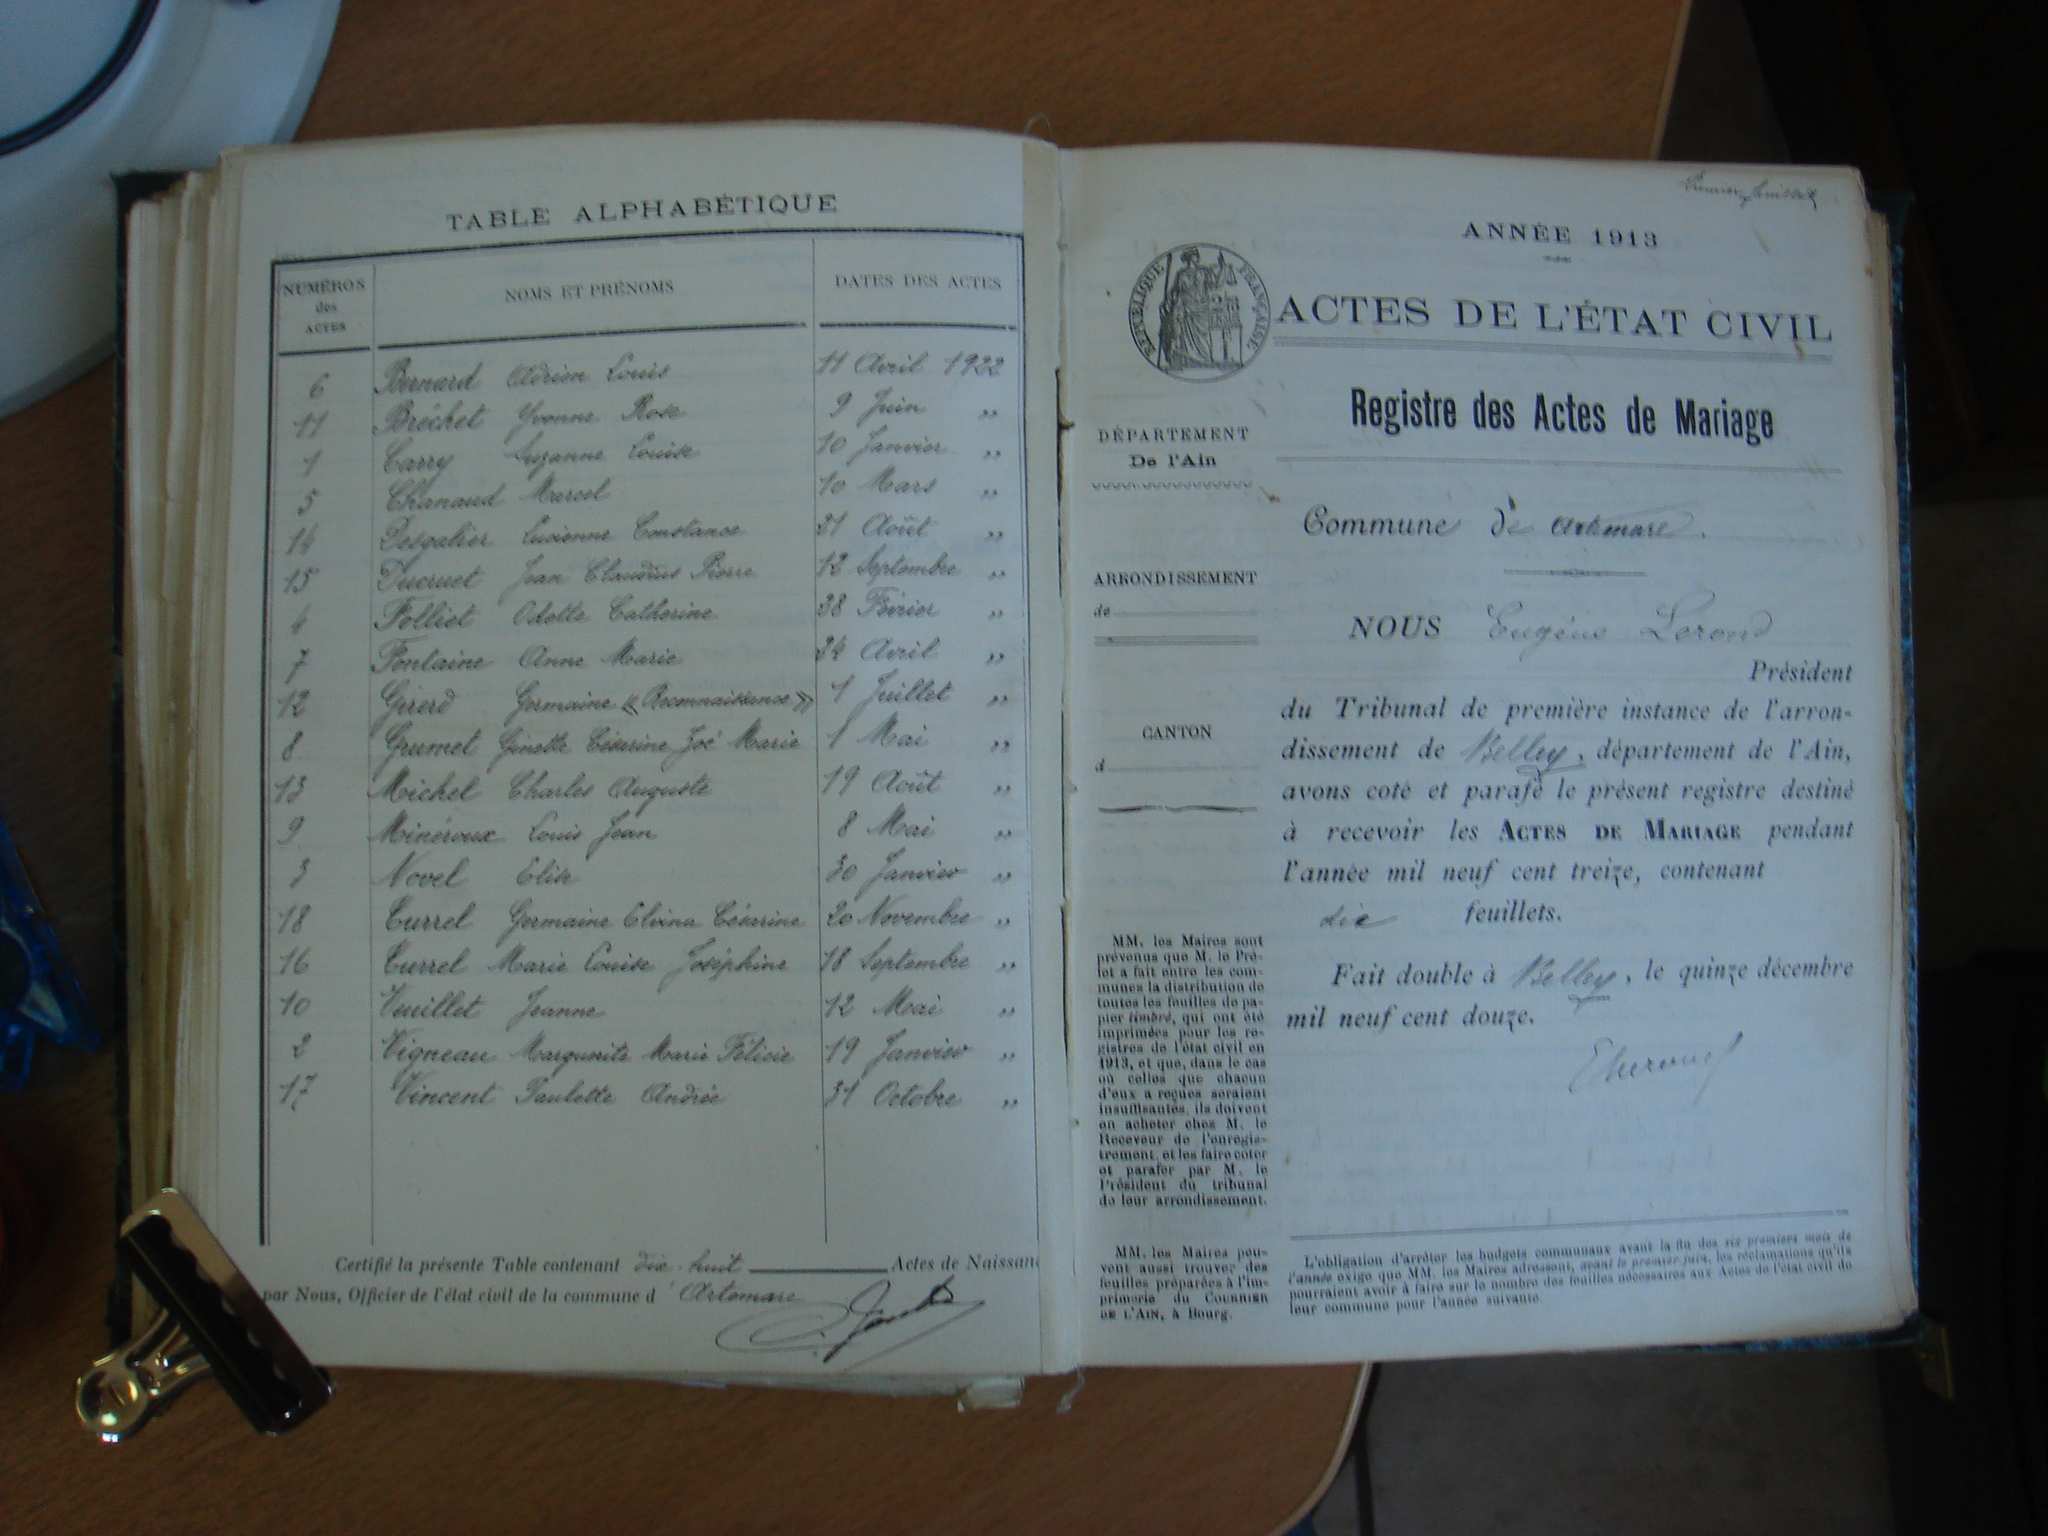 TABLE ALPHABÉTIQUE
NUMÉROS des ACTES
NOMS ET PRÉNOMS
DATES DES ACTES
6 Bernard Adrien Louis 11 Avril 1922
11 Bréchet Yvonne Rose 9 Juin "
1 Carry Suzanne Louise 10 Janvier "
5 Chanaud Marcel 10 Mars "
14 Desgalier Lucienne Constance 21 Août "
15 Ducruet Jean Claudius Pierre 12 Septembre "
4 Folliet Odette Catherine 28 Février "
7 Fontaine Anne Marie 24 Avril "
12 Girerd Germaine « Reconnaissance » 1 Juillet "
8 Grumet Ginette Césarine Zoé Marie 1 Mai "
13 Michel Charles Auguste 19 Août "
9 Minéroux Louis Jean 8 Mai "
3 Novel Elise 30 Janvier "
18 Turrel Germaine Elvina Césarine 20 Novembre "
16 Turrel Marie Louise Joséphine 18 Septembre "
10 Veuillet Jeanne 12 Mai "
2 Vigneau Marguerite Marie Félicie 19 Janvier "
17 Vincent Paulette Andrée 31 Octobre "
Certifié la présente Table contenant dix-huit Actes de Naissanc
par Nous, Officier de l'état civil de la commune d'Artemare
Premier feuillet
ANNÉE 1913
RÉPUBLIQUE FRANÇAISE
ACTES DE L'ÉTAT CIVIL
Registre des Actes de Mariage
DÉPARTEMENT
De l'Ain
ARRONDISSEMENT
de
CANTON
d
MM. les Maires sont
prévenus que M. le Pré-
fet a fait entre les com-
munes la distribution de
toutes les feuilles de pa-
pier timbré, qui ont été
imprimées pour les re-
gistres de l'état civil en
1913, et que, dans le cas
où celles que chacun
d'eux a reçues seraient
insuffisantes, ils doivent
en acheter chez M. le
Receveur de l'enregis-
trement, et les faire coter
et parafer par M. le
Président du tribunal
de leur arrondissement.
MM. les Maires peu-
vent aussi trouver des
feuilles préparées à l'im-
primerie du COURRIER
DE L'AIN, à Bourg.
Commune de Artemare.
NOUS Eugène Lerond
Président
du Tribunal de première instance de l'arron-
dissement de Belley, département de l'Ain,
avons coté et parafé le présent registre destiné
à recevoir les ACTES DE MARIAGE pendant
l'année mil neuf cent treize, contenant
dix feuillets.
Fait double à Belley, le quinze décembre
mil neuf cent douze.
L'obligation d'arrêter les budgets communaux avant la fin des six premiers mois de
l'année exige que MM. les Maires adressent, avant le premier juin, les réclamations qu'ils
pourraient avoir à faire sur le nombre des feuilles nécessaires aux Actes de l'état civil de
leur commune pour l'année suivante.